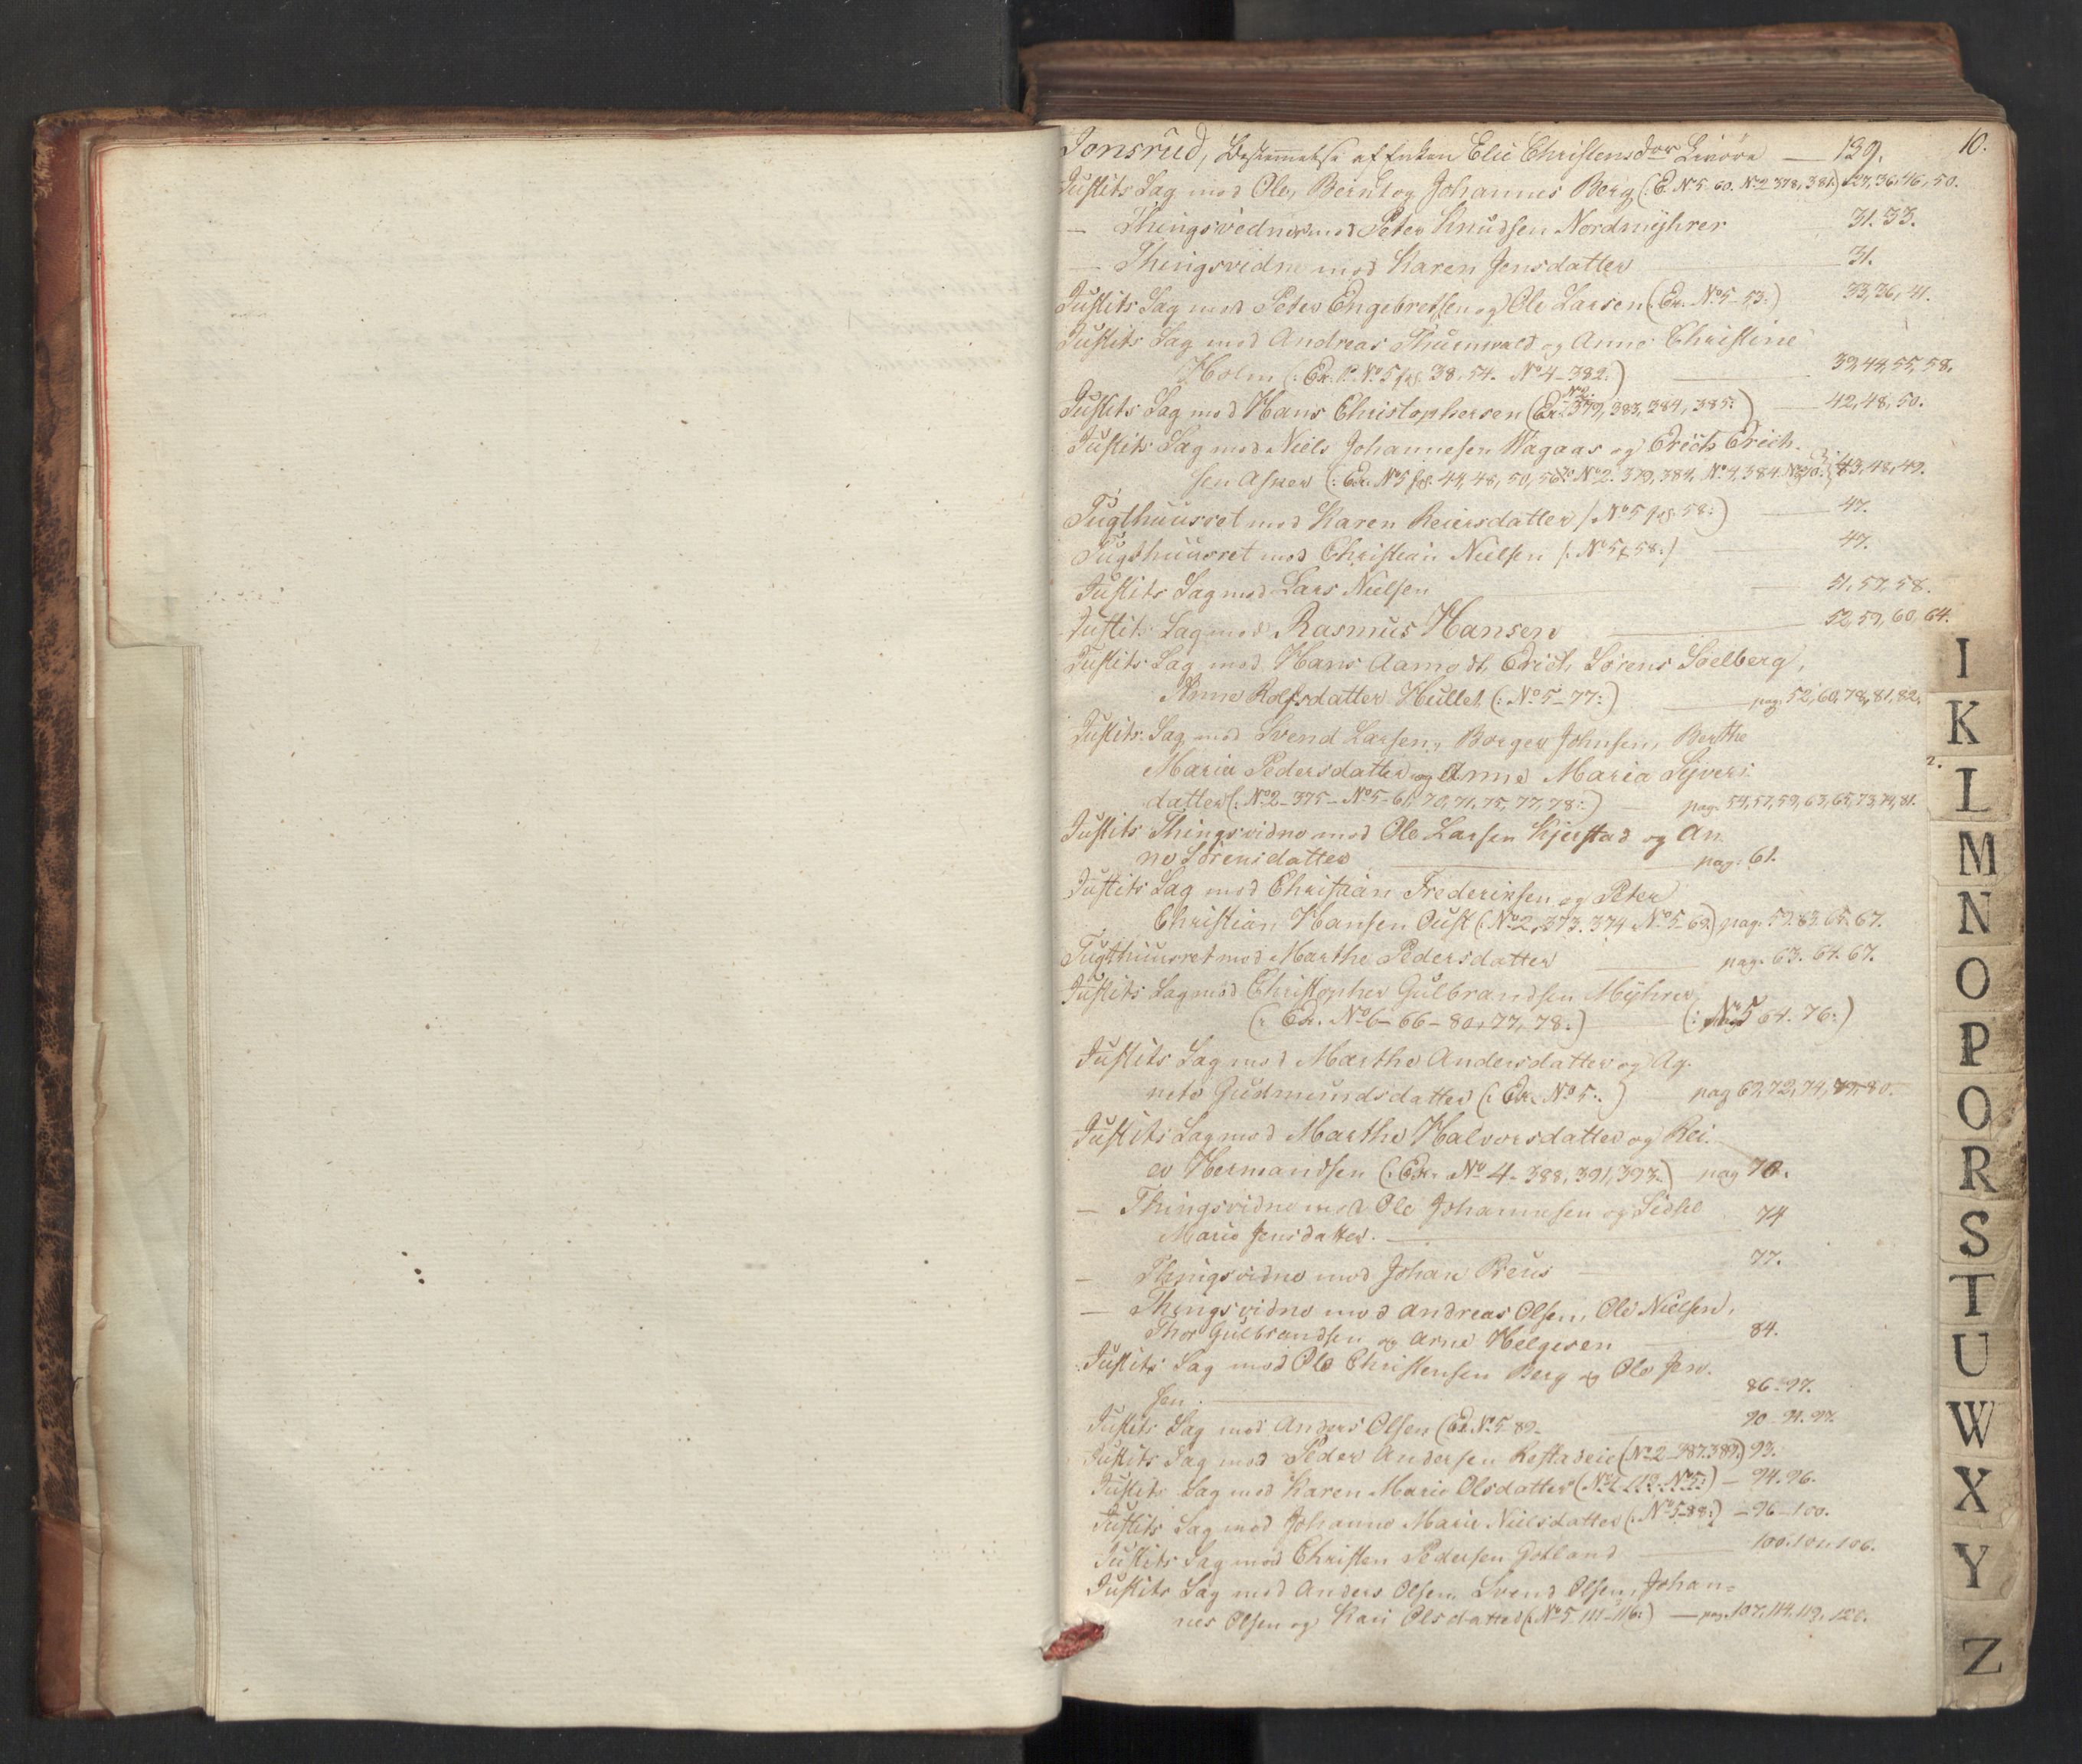 10.
Jonsrud, Besiemelse af Enken Elie Christensdor — 139.
Justits Sag mod Ole, Bernt og Johannes Berg (: E. No 5 60. No 2 378, 381:) 27, 36, 46, 50.
— Thingsvidne mod Peter Knudsen Nordmyhrer 31. 33.
— Thingsvidne mod Karen Jensdatter — 31.
Justits Sag mod Peter Engebretsen og Ole Larsen (: Ex. No 5 - 53:) 33, 36, 41.
Justits Sag mod Andreas Thurnwald og Anne Christine
Holm (: Ex. P. No 5 pag. 38, 54. No 4 - 382:) — 39, 44, 55, 58.
Justits Sag mod Hans Christophersen (Ex. No 2 379, 383, 384, 385:) — 42, 48, 50.
Justits Sag mod Niels Johannesen Wagaas og Erich Erich-
sen Asker (: Ex. No 5 pag. 44, 48, 50, No 2. 379, 384, No 4, 384 43, 48, 49.
Tugthuusret mod Karen Reiersdatter /: No 5 pag. 58:) — 47.
Tugthuusret mod Christian Nielsen /: No 5 f 58:/ — 47.
Justits Sag mod Lars Nielsen — 51, 57, 58.
Justits Sag mod Rasmus Hansen — 52, 59, 60, 64.
Justits Sag mod Hans Aamodt, Erich Sørens Soelberg,
Anne Rolfsdatter Hullet (: No 5 - 77:) — pag. 52, 60, 78, 81, 82.
Justits Sag mod Svend Larsen, Borger Johnsen, Berthe
Maria Pedersdatter og Anne Maria Syvers-
datter (: No 2 - 375 - No 5 - 61, 70, 71, 75, 77, 78:) — pag. 54, 57, 59, 63, 65, 73, 74, 81.
Justits Thingsvidne mod Ole Larsen Kjerstad og An-
ne Sørensdatter — pag. 61.
Justits Sag mod Christian Frederiksen og Peter
Christian Hansen Oust (: No 2, 373. 374 No 5 69:) pag. 59. 63. 65. 67.
Tugthuusret mod Marthe Pedersdatter — pag. 63. 64. 67.
Justits Sag mod Christopher Gulbrandsen Myhrer,
(: Ex. No 6 - 66 - 80, 77, 78:) — (: No 5 64. 76:)
Justits Sag mod Marthe Andersdatter og Ag-
nete Gudmundsdatter (: Ex. No 5:.) pag 69, 72, 74, 77, 80.
Justits Sag mod Marthe Halvorsdatter og Rei-
er Hermandsen (: Ex. No 4 - 388, 391, 393:) pag 70.
— Thingsvidne mod Ole Johannesen og Sidsel
Marie Jensdatter. — 74
— Thingsvidne mod Johan Preus — 77.
— Thingsvidne mod Andreas Olsen, Ole Nielsen,
Thor Gulbrandsen og Arne Helgesen — 84.
Justits Sag mod Ole Christensen Berg og Ole Jen-
sen. — 86 - 97.
Justits Sag mod Anders Olsen (Ex. No 5 89. 90 - 91. 97.
Justits Sag mod Peder Andersen (No 2 - 387. 389:) 93.
Justits Sag mod Karen Marie Olsdatter — 94. 96.
Justits Sag mod Johanne Marie Nielsdatter (: No 5 - 88:) — 96 - 100.
Justits Sag mod Christen Pedersen Gotland — 100. 101. 106.
Justits Sag mod Anders Olsen, Svend Olsen, Johan=
nes Olsen og Kari Olsdatter (: No 5. 111 - 116:) — pag. 107, 114, 119, 120.
I
K
2.
L
M
N
O
P
Q
R
S
T
U
W
X
Y
Z